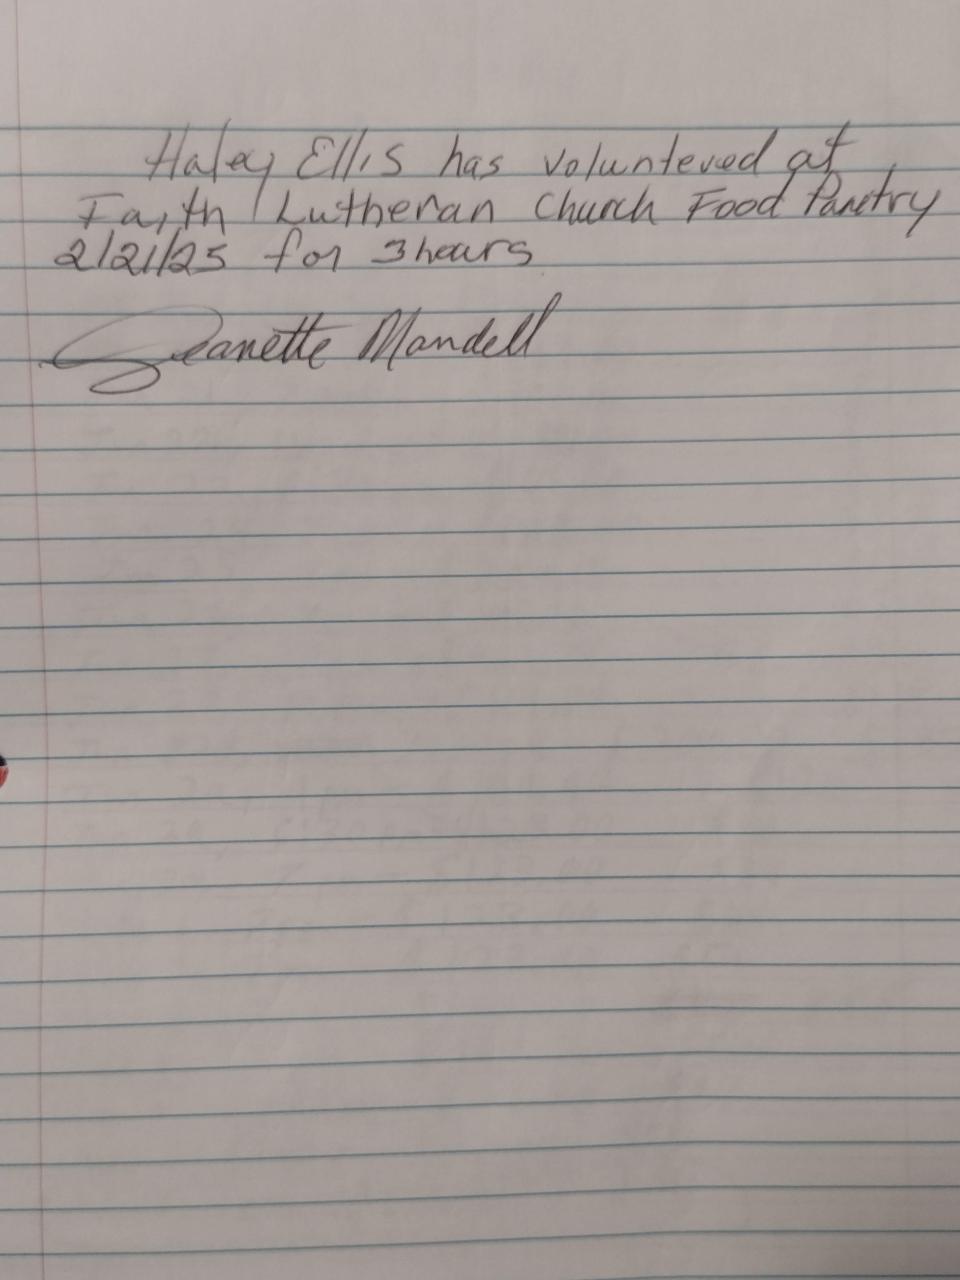 Haley Ellis has volunteered at
Faith Lutheran Church Food Pantry
2/21/25 for 3 hours
Jeanette Mandell